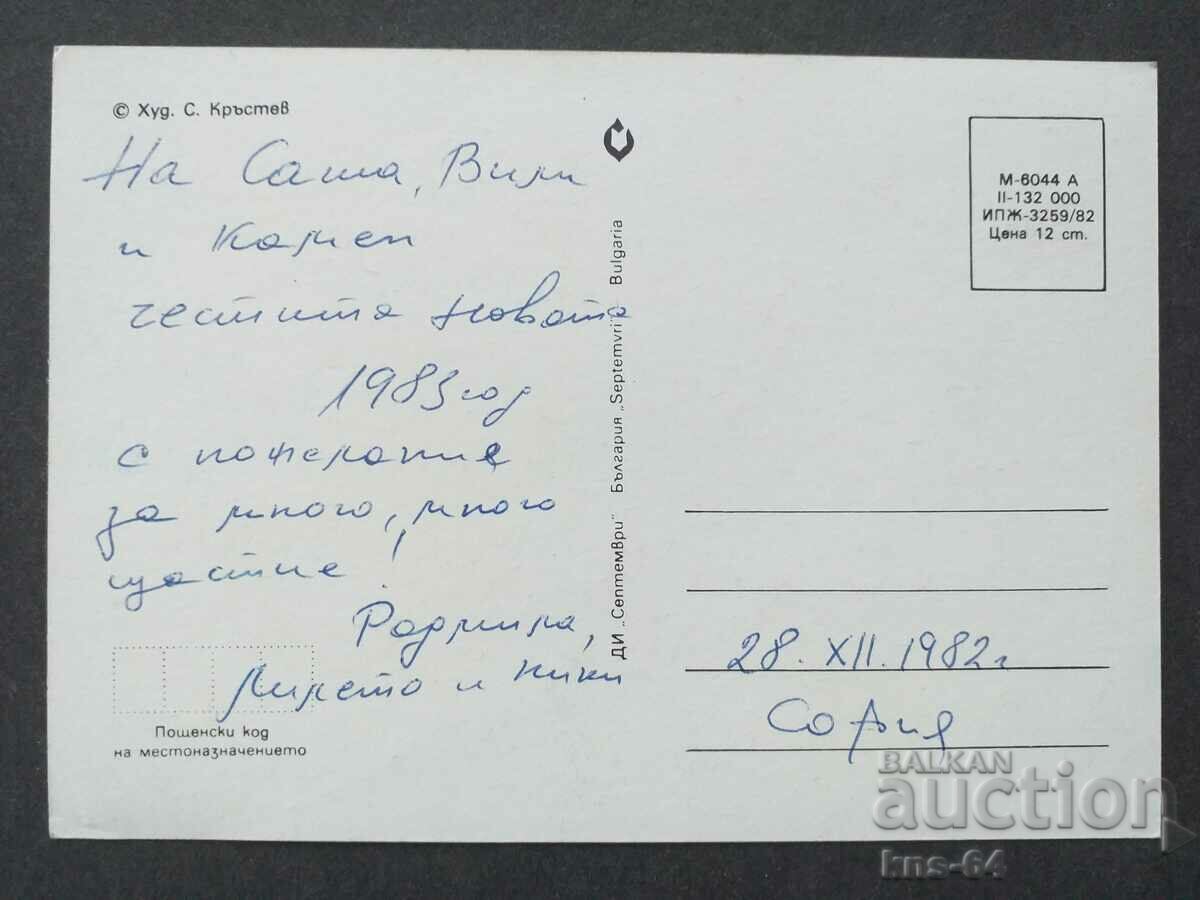 © Худ. С. Кръстев
На Саша, Вили
и Камен
честита новата
1983 год
с пожелание
за много, много
щастие!
Радмила,
и Ники
Пощенски код
на местоназначението
ДИ „Септември" България „Septemvri" Bulgaria
М-6044 А
II-132 000
ИПЖ-3259/82
Цена 12 ст.
28. XII. 1982 г
София
BALKAN
auction
kns-64